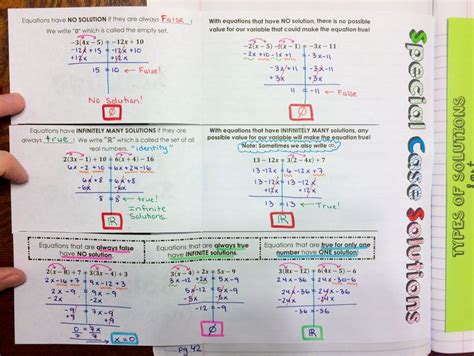 Equations have NO SOLUTION if they are always False.
We write "∅" which is called the empty set.
-3(4x - 5) = -12x + 10
-12x + 15 = -12x + 10
+12x +12x
15 = 10 ← False!
No Solution!
∅
With equations that have NO solution, there is no possible
value for our variable that could make the equation true!
-2(x - 5) - (x - 1) = -3x - 11
-2x + 10 - 1x + 1 = -3x - 11
-3x + 11 = -3x - 11
+3x +3x
11 = -11 ← False!
∅
Equations have INFINITELY MANY SOLUTIONS if they are
always true. We write "ℝ" which is called the set of all
real numbers. "identity"
2(3x - 1) + 10 = 6(x + 4) - 16
6x - 2 + 10 = 6x + 24 - 16
6x + 8 = 6x + 8
-6x -6x
8 = 8 ← true!
Infinite
Solutions.
ℝ
With equations that have INFINITELY MANY solutions, any
possible value for our variable will make the equation true!
Note: Sometimes we also write
13 - 12x = 3(2 - 4x) + 7
13 - 12x = 6 - 12x + 7
13 - 12x = 13 - 12x
+12x +12x
13 = 13 ← true!
ℝ
Equations that are always false
have NO SOLUTION.
Equations that are always true
have INFINITE SOLUTIONS.
Equations that are true for only one
number have ONE SOLUTION!
2x - 9 = 9x - 9
-2x -2x
-9 = 7x - 9
+9 +9
0 = 7x
x = 0
2x = 5x - 9
∅
3(8x - 12) = 6(4x - 5) - 6
24x - 36 = 24x - 30 - 6
24x - 36 = 24x - 36
-24x -24x
-36 = -36
ℝ
pg 42
Special Case Solutions
TYPES OF SOLUTIONS